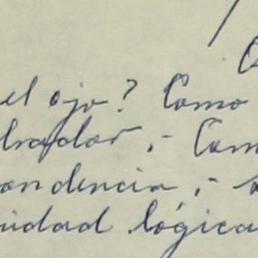 el ojo? Como
lrador, - Com
ondencia, -
nidad lógica